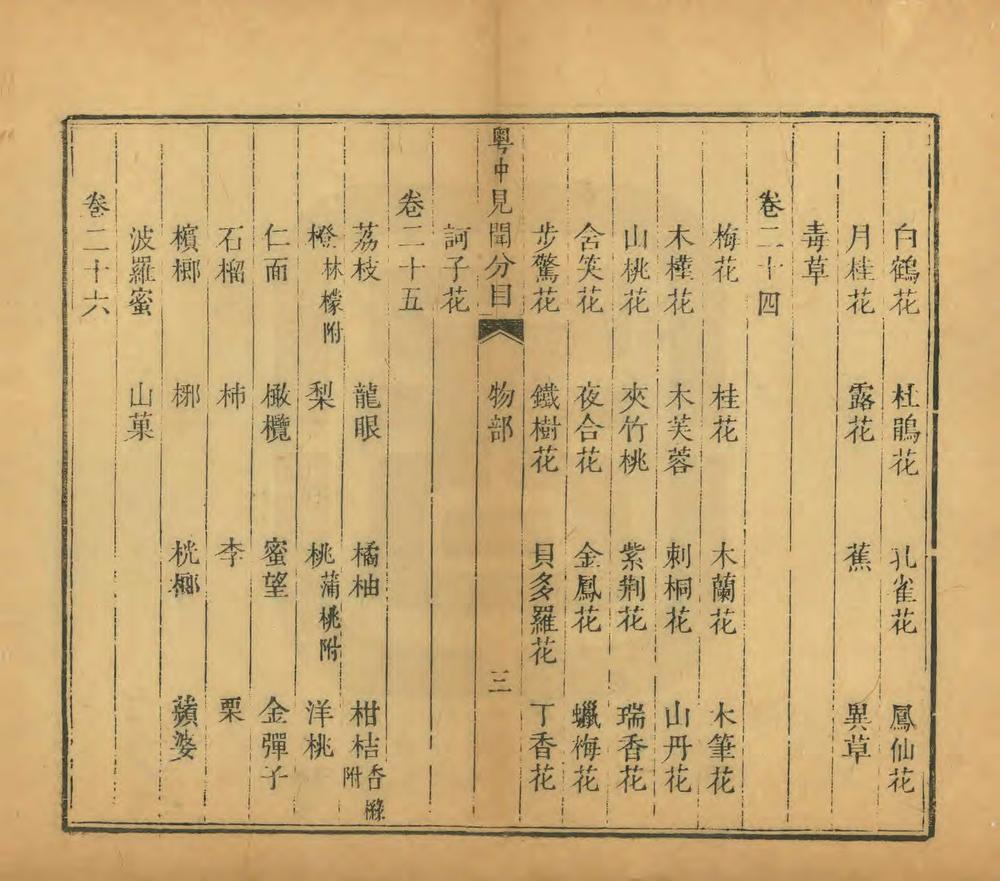 白鶴花 杜鵑花 孔雀花 鳳仙花
月桂花 露花 蕉 異草
毒草
卷二十四
梅花 桂花 木蘭花 木筆花
木槿花 木芙蓉 刺桐花 山丹花
山桃花 夾竹桃 紫荆花 瑞香花
含笑花 夜合花 金鳳花 蠟梅花
步驚花 鐵樹花 貝多羅花 丁香花
粵中見聞分目 物部 三
訶子花
卷二十五
荔枝 龍眼 橘柚 柑桔香櫞附
橙林檬附 梨 桃蒲桃附 洋桃
仁面 橄欖 蜜望 金彈子
石榴 柿 李 栗
檳榔 椰 桄榔 蘋婆
波羅蜜 山菓
卷二十六